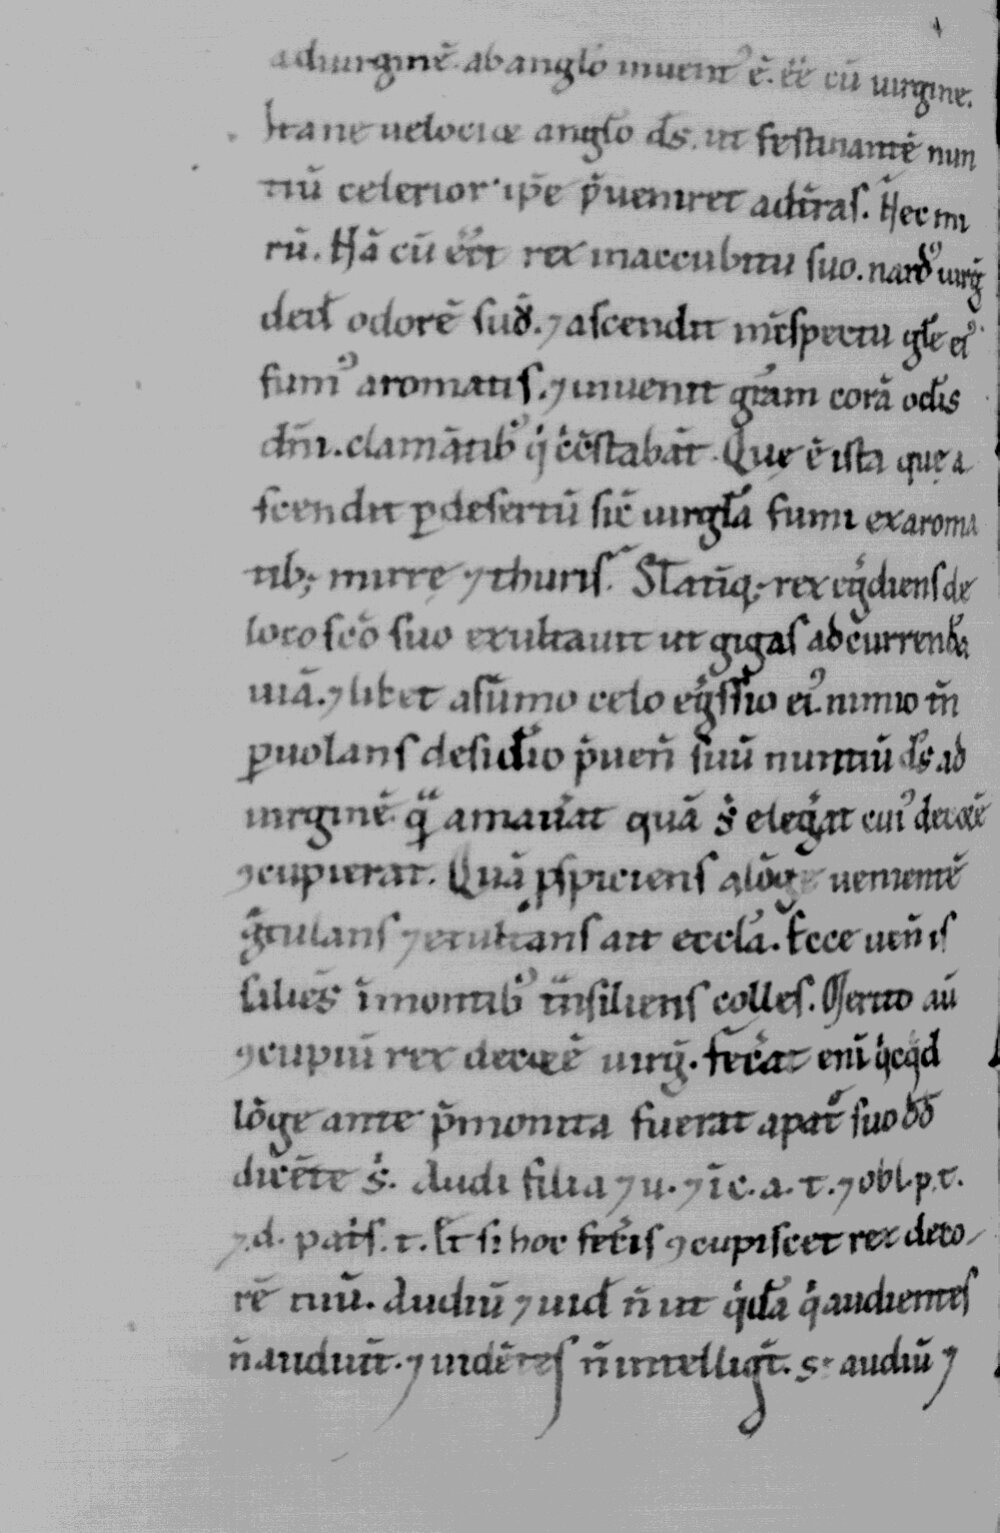 ad uirginē. ab anglo inuent᷒ ē. ēē cū uirgine.
hane uelocior anglo ds̄. ut festinantē nun
tiū celerior ip̄e p̄ueniret ad t̄ras. Nec mi
rū. Nā cū eēt rex in accubitu suo. nard᷒ uirḡ
dedˀ odorē suū. ⁊ ascendit in c̄spectu gl̄e ei᷒
fum᷒ aromatis. ⁊ inuenit gr̄am corā oc̄lis
dn̄i. clamātib᷒ q̄ c̄stabāt. Quę ē ista quę a
scendit ꝑ desertū sic̄ uirgl̄a fumi ex aroma
tib; mirrę ⁊ thuris. Statīq; rex egr̄diens de
loco scō suo exultauit ut gigas ad currendā
uiā. ⁊ licet a sūmo celo egr̄ssio ei᷒. nimio tn̄
ꝑuolans desiderio p̄ueñ suū nuntiū ds̄ ad
uirginē. quā amauerat quā sˀ elegˀat cui᷒ decorē
ꝯcupierat. Quā ꝓspiciens a lōge uenientē
gr̄tulans ⁊ exultans ait eccl̄a. Ecce ueñ is
saliēs ī montib᷒ trāsiliens colles. Merito aū
ꝯcupiuˀ rex decorē uirḡ. Fecˀat enī q̄cq̄d
lōge ante p̄monita fuerat a patˀ suo dd̄
dicēte sˀ. Audi filia ⁊ u. ⁊ īc. a. t. ⁊ obl. p. t.
⁊ d. pat̄s. t. Et si hoc fecˀis ꝯcupiscet rex deco
rē tuū. Audiuˀ ⁊ uidˀ n̄ ut q̄dā q̄ audientes
n̄ audiūt. ⁊ uidētes n̄ intelligt̄. sˀ audiuˀ ⁊